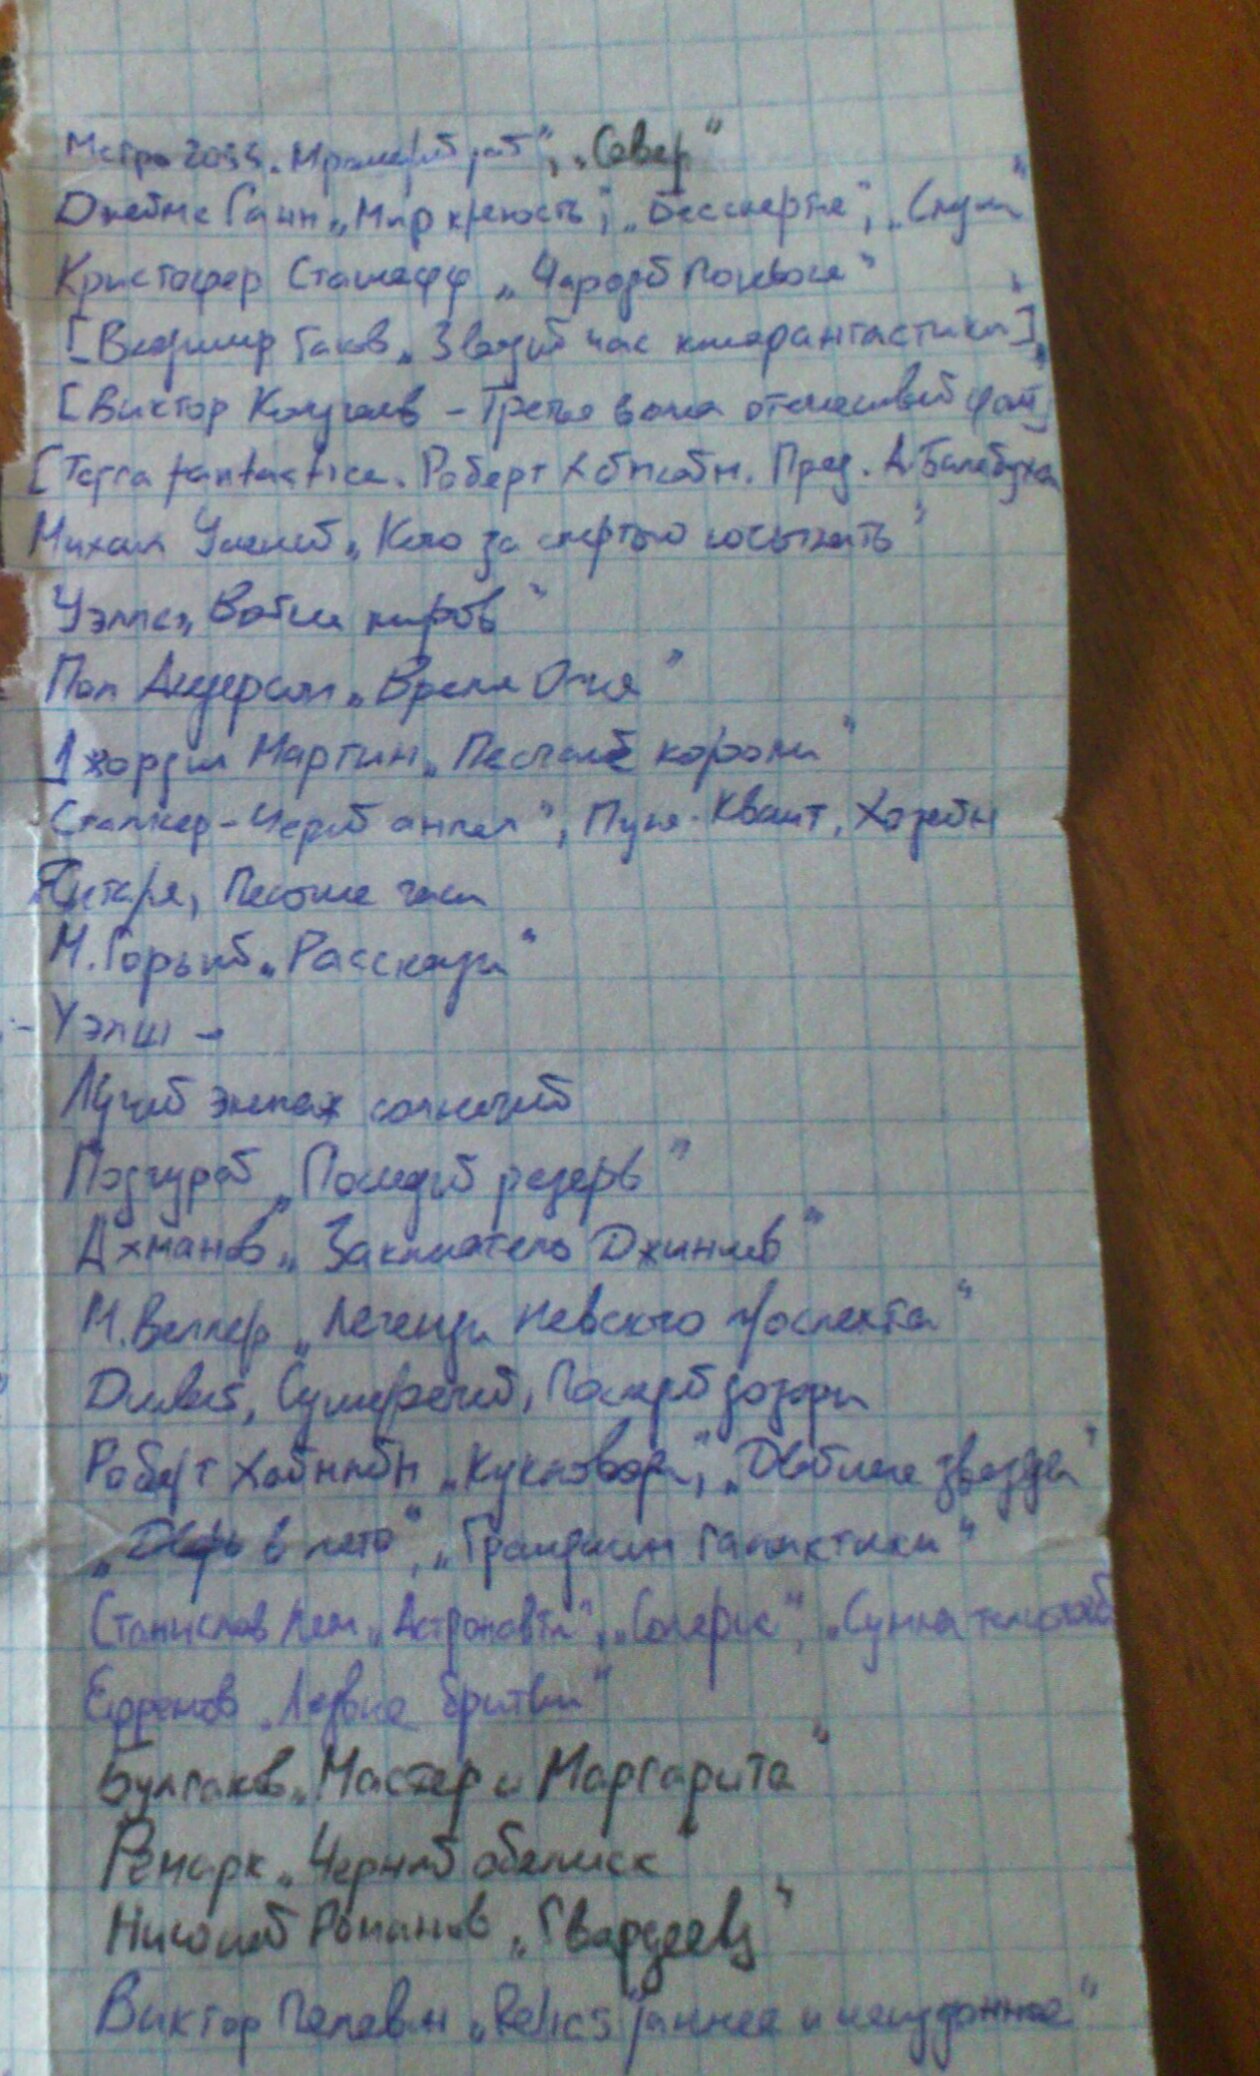 Метро 2033. Мраморный рай", „Север"
Джеймс Ганн „Мир крепость", „Бессмертные",
Кристофер Сташефф „Чародей поневоле"
[Владимир Гаков „Звездный час кинофантастики]
[Виктор Колупаев - Третья волна отечественной фант]
[Terra fantastica. Роберт Хайнлайн. Пред. А. Балабуха
Михаил „Кого за смертью посылать"
Уэллс „Война миров"
Пол Андерсон „Время Огня"
Джордж Мартин „Песчаные короли"
Сталкер - Черный ангел", Пуля-Квант, Хозяин
Янтаря, Песочные часы
М. Горький „Рассказы"
- Уэллш -
Лучший экипаж солнечной
„Последний резерв"
Ахманов „Заклинатель Джиннов"
М. Веллер „Легенды Невского проспекта"
Дневной, Сумеречный, Последний дозоры
Роберт Хайнлайн „Кукловоды", „Двойная звезда"
„Дверь в лето", „Гражданин галактики"
Станислав Лем „Астронавты", „Солярис", „Сумма технологий
Ефремов „Лезвие бритвы"
Булгаков „Мастер и Маргарита"
Ремарк „Черный обелиск"
Николай Романов „Гвардеец"
Виктор Пелевин „Relics раннее и неизданное"